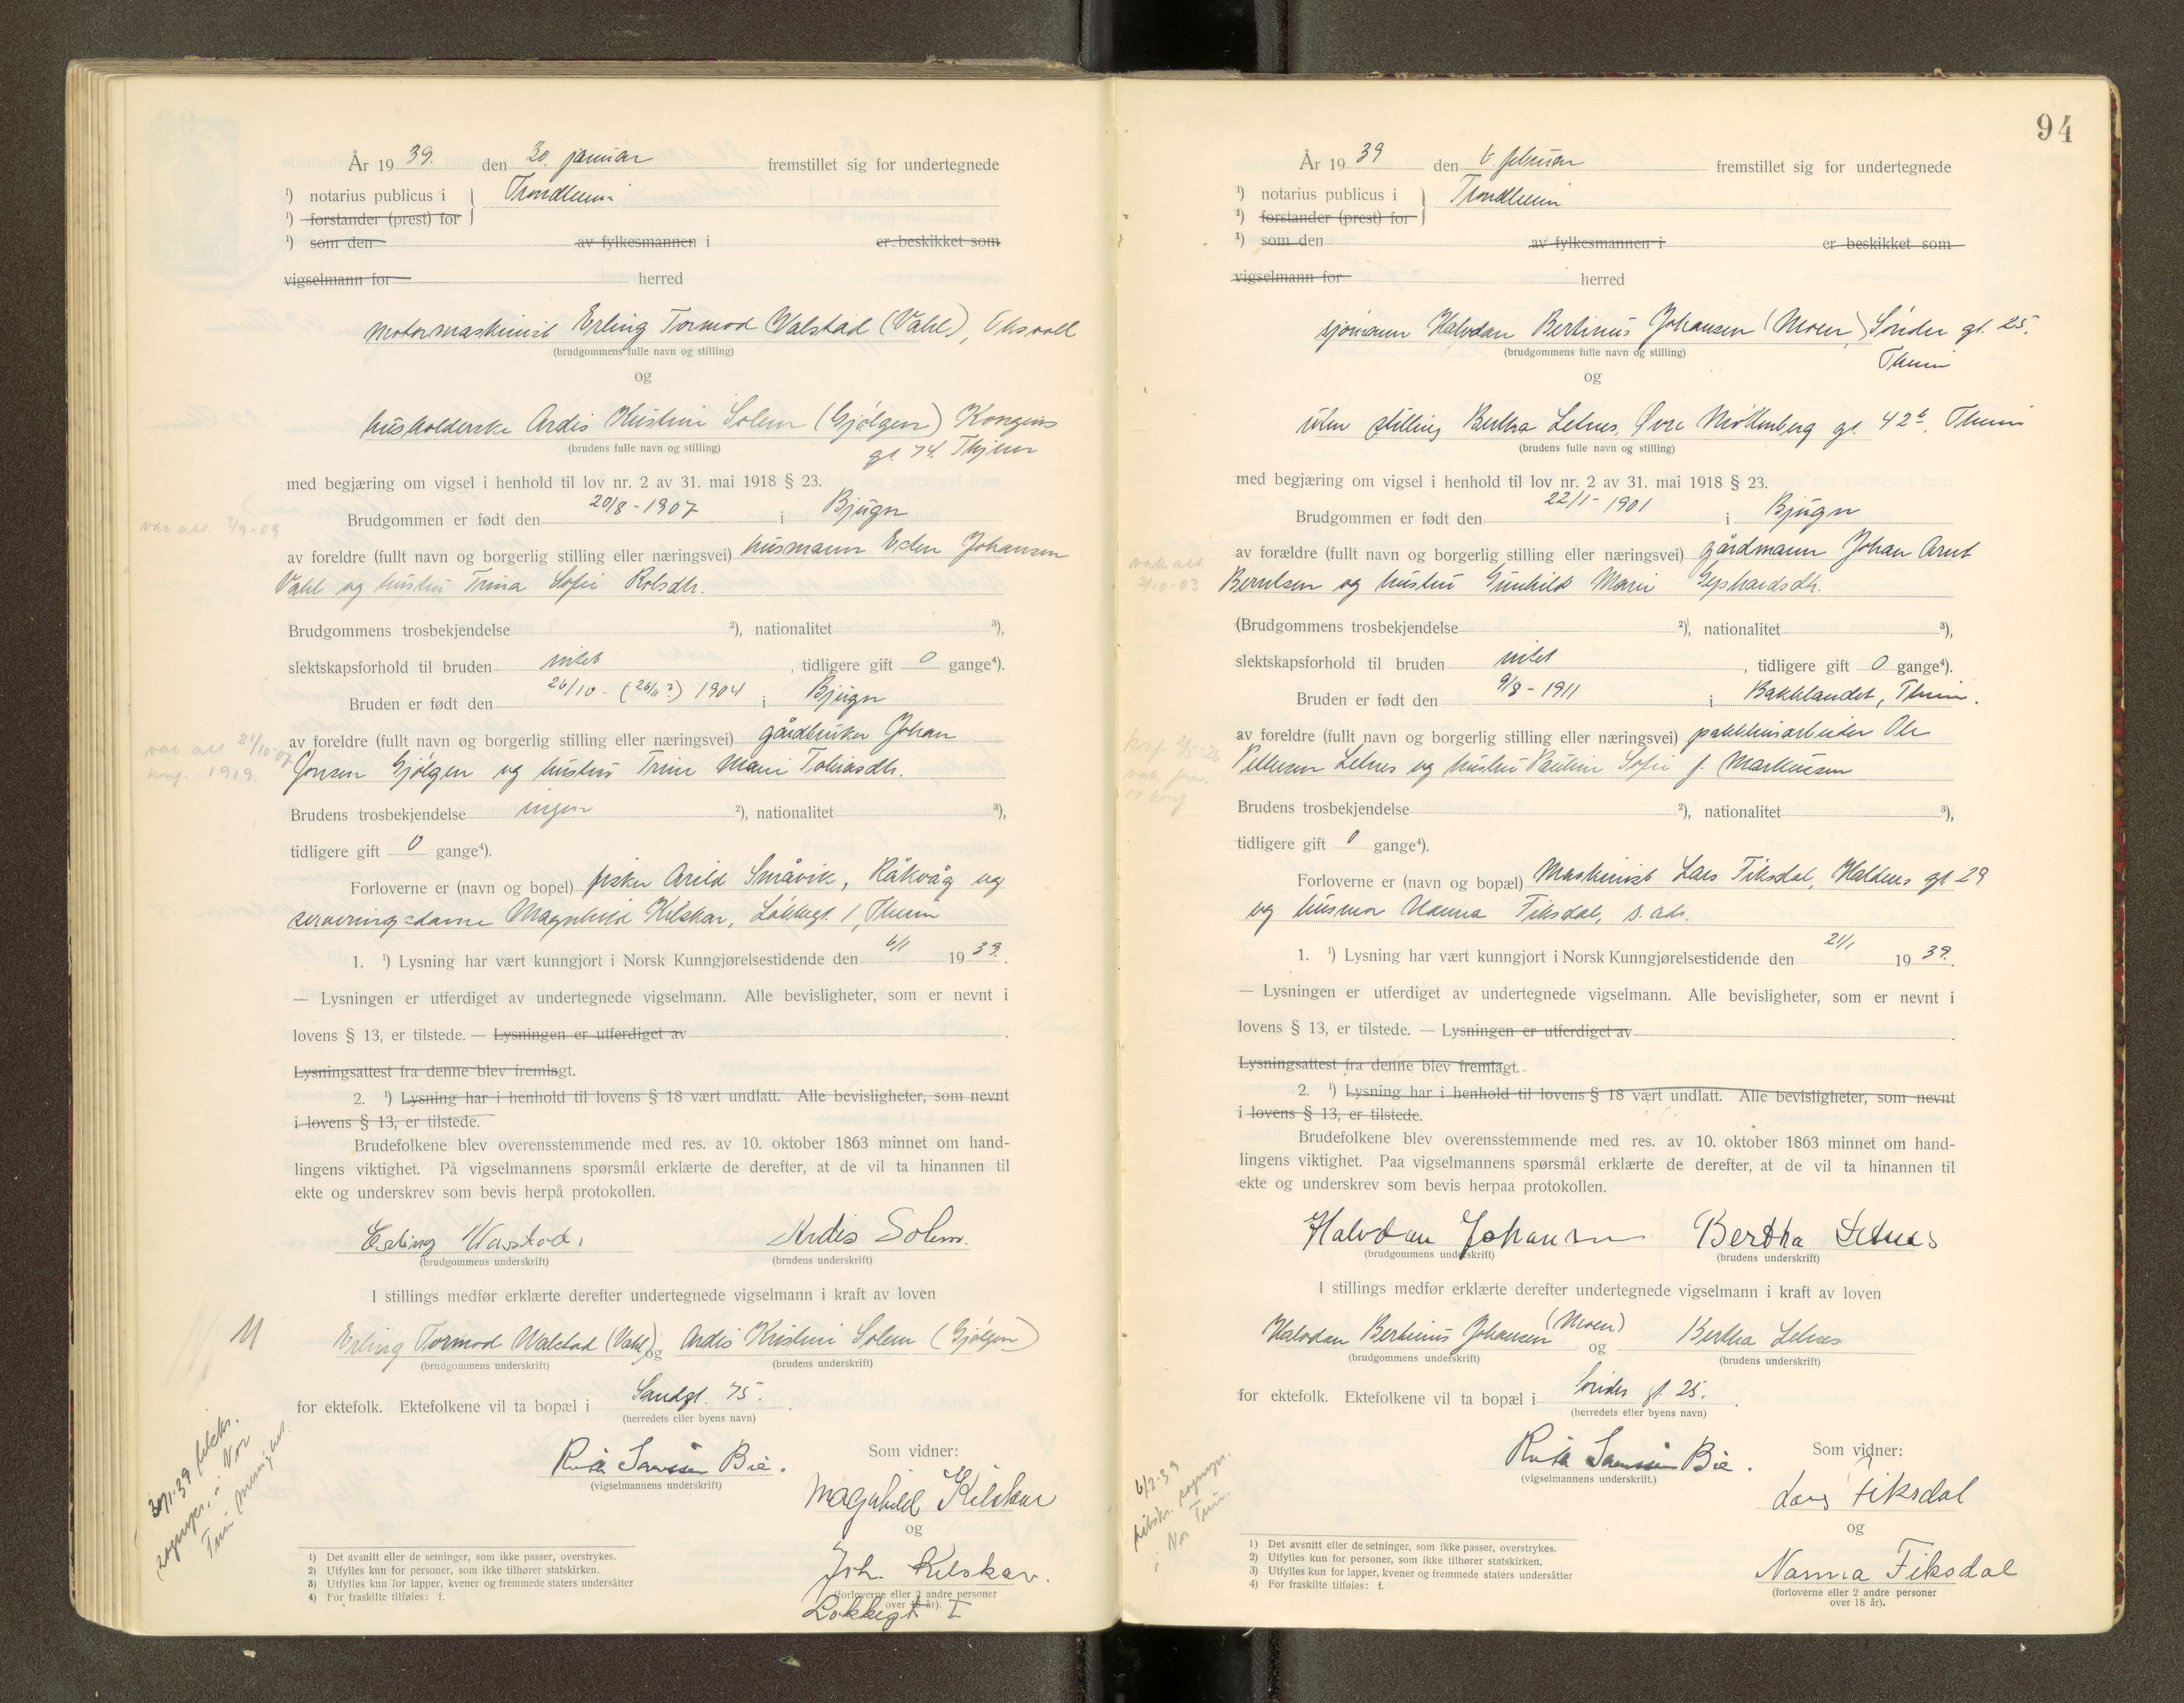 År 19 39. den 30. januar fremstillet sig for undertegnede
¹) notarius publicus i } Trondheim
¹) forstander (prest) for
¹) som den av fylkesmannen i er beskikket som
vigselmann for herred
motormaskinist Erling Tormod Valstad (Vahl),
(brudgommens fulle navn og stilling)
og
husholderske Ardis Kristine Solem (Gjølgen) Kongens
gt. 74. Thjem
(brudens fulle navn og stilling)
med begjæring om vigsel i henhold til lov nr. 2 av 31. mai 1918 § 23.
Brudgommen er født den 20/8 - 1907 i Bjugn
vac. att. 2/9-09
av foreldre (fullt navn og borgerlig stilling eller næringsvei) husmann Esten Johansen
Vahl og hustru Trina Sofie Rolsdtr.
Brudgommens trosbekjendelse ²), nationalitet ³),
slektskapsforhold til bruden intet , tidligere gift 0 gange⁴).
Bruden er født den 26/10 - (26/11 ?) 1904 i Bjugn
vac. att. 21/10-07
konf. 1919.
av foreldre (fullt navn og borgerlig stilling eller næringsvei) gårdbruker Johan
Jonsen Gjølgen og hustru Trine Marie Tobiasdtr.
Brudens trosbekjendelse ingen ²), nationalitet ³),
tidligere gift 0 gange⁴).
Forloverne er (navn og bopel) fisker Arild Småvik, Råkvåg og
serveringsdame Magnhild Kilskar, Løkkegt. 1, Theim
1. ¹) Lysning har vært kunngjort i Norsk Kunngjørelsestidende den 6/1 19 39.
— Lysningen er utferdiget av undertegnede vigselmann. Alle bevisligheter, som er nevnt i
lovens § 13, er tilstede. — Lysningen er utferdiget av .
Lysningsattest fra denne blev fremlagt.
2. ¹) Lysning har i henhold til lovens § 18 vært undlatt. Alle bevisligheter, som nevnt
i lovens § 13, er tilstede.
Brudefolkene blev overensstemmende med res. av 10. oktober 1863 minnet om hand-
lingens viktighet. På vigselmannens spørsmål erklærte de derefter, at de vil ta hinannen til
ekte og underskrev som bevis herpå protokollen.
Erling Valstad. Ardis Solem.
(brudgommens underskrift) (brudens underskrift)
I stillings medfør erklærte derefter undertegnede vigselmann i kraft av loven
Erling Tormod Valstad (Vahl) og Ardis Kristine Solem (Gjølgen)
(brudgommens underskrift) (brudens underskrift)
for ektefolk. Ektefolkene vil ta bopæl i Sandgt. 75. .
(herredets eller byens navn)
30/1-39
i Nor
menighet.
Som vidner:
Bie.
(vigselmannens underskrift)
Magnhild Kilskar
og
Joh. Kilskar.
(forloverne eller 2 andre personer
over 18 år).
Løkkegt I
¹) Det avsnitt eller de setninger, som ikke passer, overstrykes.
²) Utfylles kun for personer, som ikke tilhører statskirken.
³) Utfylles kun for lapper, kvener og fremmede staters undersåtter
⁴) For fraskilte tilføies: f.
94
År 19 39 den 6. februar fremstillet sig for undertegnede
¹) notarius publicus i } Trondheim
¹) forstander (prest) for
¹) som den av fylkesmannen i er beskikket som
vigselmann for herred
sjømann Halvdan Bertinus Johansen (Moen) Søndre gt. 25.
Theim
(brudgommens fulle navn og stilling)
og
uten stilling Bertha Letnes, Øvre Møllenberg gt. 42b, Theim
(brudens fulle navn og stilling)
med begjæring om vigsel i henhold til lov nr. 2 av 31. mai 1918 § 23.
Brudgommen er født den 22/1 - 1901 i Bjugn
av forældre (fullt navn og borgerlig stilling eller næringsvei) gårdmann Johan Arnt
Berntsen og hustru Gunhild Marie
(Brudgommens trosbekjendelse ²), nationalitet ³),
slektskapsforhold til bruden intet , tidligere gift 0 gange⁴).
Bruden er født den 9/8 - 1911 i Bakklandet, Theim.
av foreldre (fullt navn og borgerlig stilling eller næringsvei) pakkhusarbeider Ole
Pettersen Letnes og hustru Pauline Sofie f. Markussen
Brudens trosbekjendelse ²), nationalitet ³),
tidligere gift 0 gange⁴).
Forloverne er (navn og bopæl) Maskinist Lars Fiksdal, gt 29
og husmor Nanna Fiksdal, s. ads.
1. ¹) Lysning har vært kunngjort i Norsk Kunngjørelsestidende den 21/1 19 39.
— Lysningen er utferdiget av undertegnede vigselmann. Alle bevisligheter, som er nevnt i
lovens § 13, er tilstede. — Lysningen er utferdiget av .
Lysningsattest fra denne blev fremlagt.
2. ¹) Lysning har i henhold til lovens § 18 vært undlatt. Alle bevisligheter, som nevnt
i lovens § 13, er tilstede.
Brudefolkene blev overensstemmende med res. av 10. oktober 1863 minnet om hand-
lingens viktighet. Paa vigselmannens spørsmål erklærte de derefter, at de vil ta hinannen til
ekte og underskrev som bevis herpaa protokollen.
Halvdan Johansen Bertha Letnes
(brudgommens underskrift) (brudens underskrift)
I stillings medfør erklærte derefter undertegnede vigselmann i kraft av loven
Halvdan Bertinus Johansen (Moen) og Bertha Letnes
(brudgommens underskrift) (brudens underskrift)
for ektefolk. Ektefolkene vil ta bopæl i Søndre gt. 25. .
(herredets eller byens navn)
6/2-39
Som vidner:
Bie.
(vigselmannens underskrift.)
Lars Fiksdal
og
Nanna Fiksdal
(forloverne eller 2 andre personer
over 18 år).
¹) Det avsnitt eller de setninger, som ikke passer, overstrykes.
²) Utfylles kun for personer, som ikke tilhører statskirken.
³) Utfylles kun for lapper, kvener og fremmede staters undersåtter
⁴) For fraskilte tilføies: f.